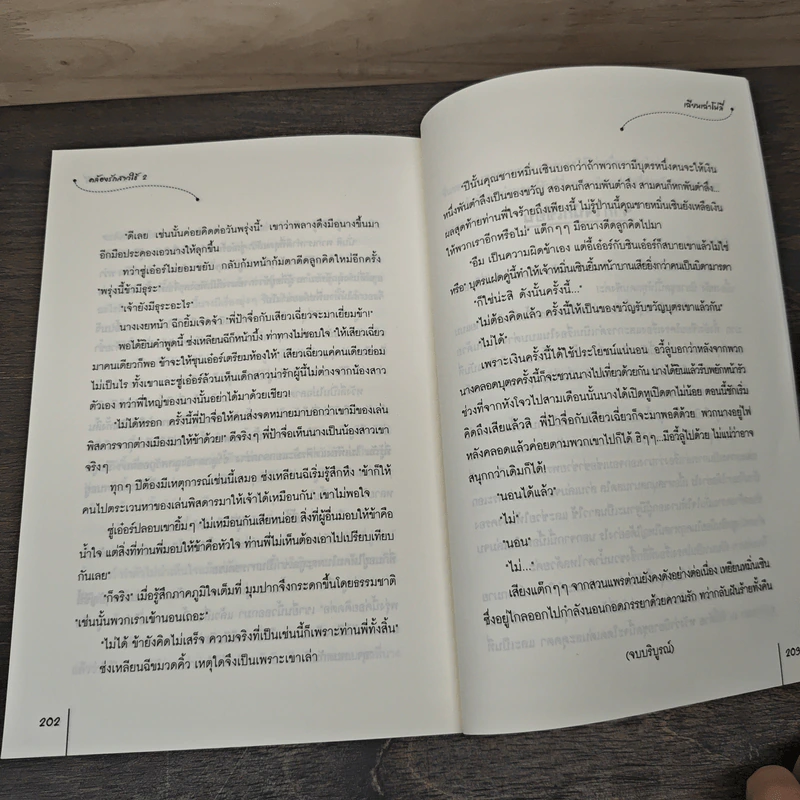 คล้องรักสลาตัน 2
"ดีเลย เช่นนั้นค่อยคิดต่อวันพรุ่งนี้" เขาว่าพลางดึงมือนางขึ้นมา
อีกมือประคองเอวนางให้ลุกขึ้น
ทว่าซู่เอ๋อร์ไม่ยอมขยับ กลับก้มหน้าก้มตาดีดลูกคิดใหม่อีกครั้ง
"พรุ่งนี้ข้ามีธุระ"
"เจ้ายังมีธุระอะไร"
นางเงยหน้า ฉีกยิ้มเจิดจ้า "พี่ป้าจื่อกับเสียวเฉี่ยวจะมาเยี่ยมข้า!"
พอได้ยินคำพูดนี้ ซ่งเหลียนฉีก็หน้าบึ้ง ท่าทางไม่ชอบใจ "ให้เสียวเฉี่ยว
มาคนเดียวก็พอ ข้าจะให้ชุนเอ๋อร์เตรียมห้องให้" เสียวเฉี่ยวแค่คนเดียวย่อม
ไม่เป็นไร ทั้งเขาและซู่เอ๋อร์ล้วนเห็นเด็กสาวน่ารักผู้นี้ไม่ต่างจากน้องสาว
ตัวเอง ทว่าพี่ใหญ่ของนางนั้นอย่าได้มาด้วยเชียว!
"ไม่ได้หรอก ครั้งนี้พี่ป้าจื่อให้คนส่งจดหมายมาบอกว่าเขามีของเล่น
พิสดารจากต่างเมืองมาให้ข้าด้วย!" ดีจริงๆ พี่ป้าจื่อเห็นนางเป็นน้องสาวเขา
จริงๆ
ทุกๆ ปีต้องมีเหตุการณ์เช่นนี้เสมอ ซ่งเหลียนฉีเริ่มรู้สึกหึง "ข้าก็ให้
คนไปตระเวนหาของเล่นพิสดารมาให้เจ้าได้เหมือนกัน" เขาไม่พอใจ
ซู่เอ๋อร์ปลอบเขายิ้มๆ "ไม่เหมือนกันเสียหน่อย สิ่งที่ผู้อื่นมอบให้ข้าคือ
น้ำใจ แต่สิ่งที่ท่านพี่มอบให้ข้าคือหัวใจ ท่านพี่ไม่เห็นต้องเอาไปเปรียบเทียบ
กันเลย"
"ก็จริง" เมื่อรู้สึกภาคภูมิใจเต็มที่ มุมปากจึงกระดกขึ้นโดยธรรมชาติ
"เช่นนั้นพวกเราเข้านอนเถอะ"
"ไม่ได้ ข้ายังคิดไม่เสร็จ ความจริงที่เป็นเช่นนี้ก็เพราะท่านพี่ทั้งสิ้น"
ซ่งเหลียนฉีขมวดคิ้ว เหตุใดจึงเป็นเพราะเขาเล่า
202
"ปีนั้นคุณชายหมิ่นเซินบอกว่าถ้าพวกเรามีบุตรหนึ่งคนจะให้เงิน
หนึ่งพันตำลึงเป็นของขวัญ สองคนก็สามพันตำลึง สามคนก็หกพันตำลึง...
ผลสุดท้ายท่านพี่ใจร้ายถึงเพียงนี้ ไม่รู้ป่านนี้คุณชายหมิ่นเซินยังเหลือเงิน
ให้พวกเราอีกหรือไม่" แต๊กๆๆ มือนางดีดลูกคิดไปมา
"อืม เป็นความผิดข้าเอง แต่อี้เอ๋อร์กับซินเอ๋อร์ก็สบายเขาแล้วไม่ใช่
หรือ" บุตรแฝดคู่นี้ทำให้เจ้าหมิ่นเซินยิ้มหน้าบานเสียยิ่งกว่าตนเป็นบิดามารดา
"ก็ใช่น่ะสิ ดังนั้นครั้งนี้..."
"ไม่ต้องคิดแล้ว ครั้งนี้ให้เป็นของขวัญรับขวัญบุตรเขาแล้วกัน"
"ไม่ได้"
เพราะเงินครั้งนี้ได้ใช้ประโยชน์แน่นอน อวี้ลู่บอกว่าหลังจากพวก
นางคลอดบุตรครั้งนี้ก็จะชวนนางไปเที่ยวด้วยกัน นางได้ยินแล้วรับพยักหน้ารัว
ช่วงที่จากหังโจวไปสามเดือนนั้นนางได้เปิดหูเปิดตาไม่น้อย ตอนนี้ชักเริ่ม
คิดถึงเสียแล้วสิ พี่ป้าจื่อกับเสียวเฉี่ยวก็จะมาพอดีด้วย พวกนางอยู่ไฟ
หลังคลอดแล้วค่อยตามพวกเขาไปก็ได้ ฮิๆๆ...มีอวี้ลู่ไปด้วย ไม่แน่ว่าอาจ
สนุกกว่าเดิมก็ได้!
"นอนได้แล้ว"
"ไม่"
"นอน"
"ไม่..."
เสียงแต๊กๆๆ จากสวนแพรต่วนยังคงดังอย่างต่อเนื่อง เหยียนหมิ่นเซิน
ซึ่งอยู่ไกลออกไปกำลังนอนกอดภรรยาด้วยความรัก ทว่ากลับฝันร้ายทั้งคืน
(จบบริบูรณ์)
203